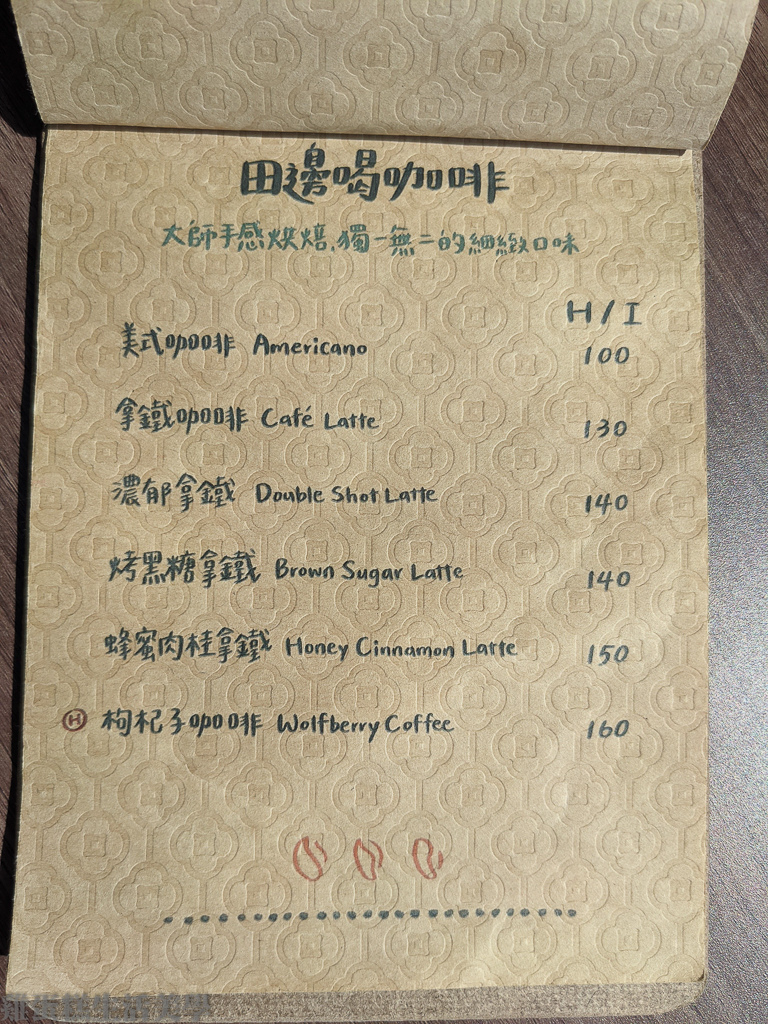 田邊喝咖啡
大師手感烘焙、獨一無二的細緻口味
H / I
美式咖啡 Americano 100
拿鐵咖啡 Café Latte 130
濃郁拿鐵 Double Shot Latte 140
烤黑糖拿鐵 Brown Sugar Latte 140
蜂蜜肉桂拿鐵 Honey Cinnamon Latte 150
Ⓗ 枸杞子咖啡 Wolfberry Coffee 160
生活美學